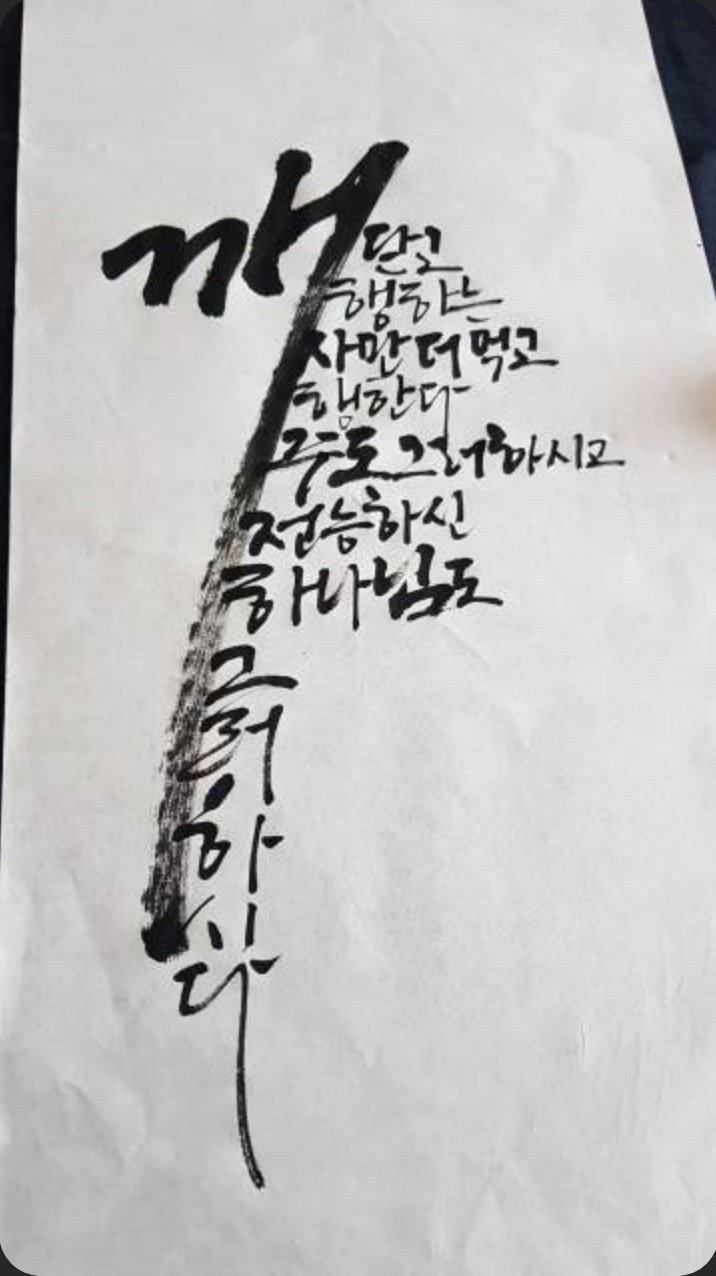 깨단고
행하는
자만 더 먹고
행한다
주도 그러하시고
전능하신
하나님도
그
러
하
시
다